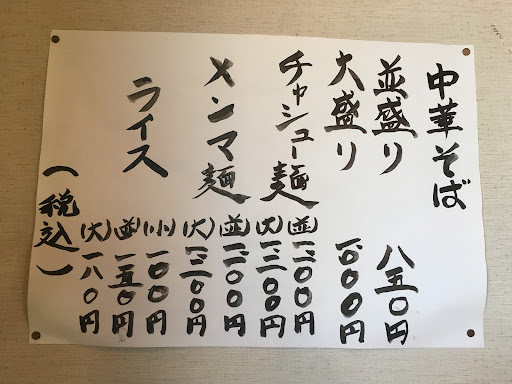 中華そば
並盛り 八五〇円
大盛り 一、〇〇〇円
チャシュー麺 (並)
(大) 一、三〇〇円
メンマ麺 (並)
(大) 一、二〇〇円
ライス (小) 一〇〇円
(並) 一五〇円
(大) 一八〇円
(税込)